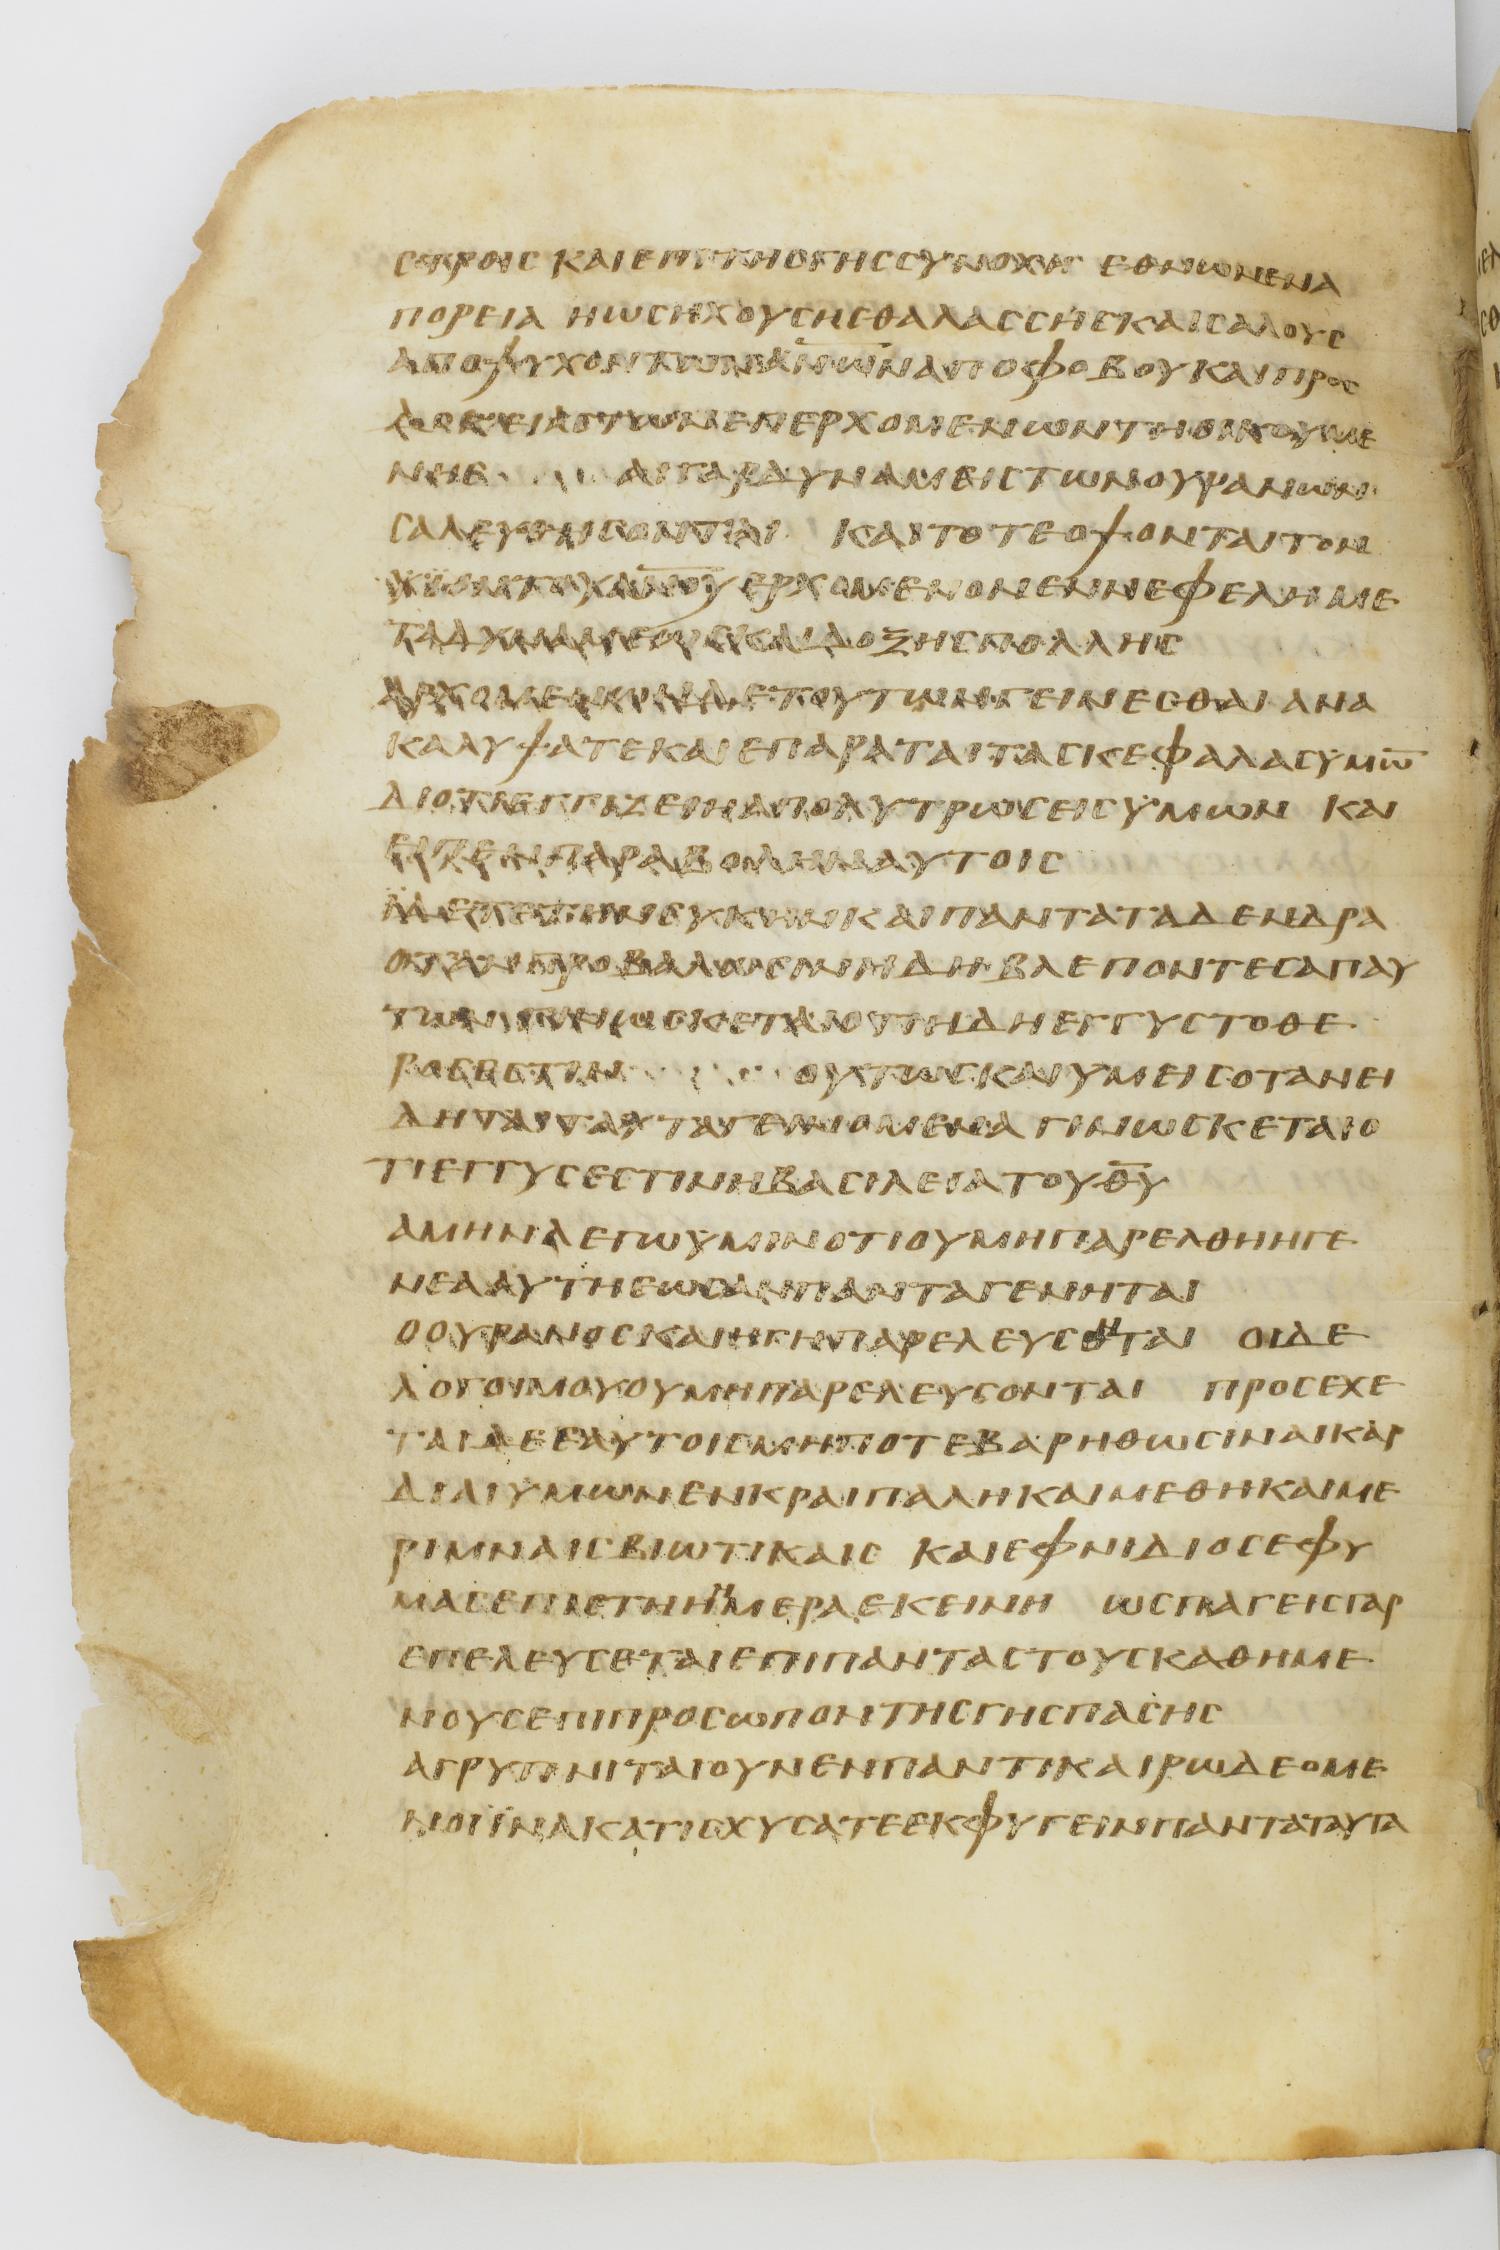 ϹΤΡΟΙϹ ΚΑΙ ΕΠΙ ΤΗϹ ΓΗϹ ϹΥΝΟΧΗ ΕΘΝΩΝ ΕΝ Α
ΠΟΡΕΙΑ ΗΩϹ ΗΧΟΥϹΗϹ ΘΑΛΑϹϹΗϹ ΚΑΙ ϹΑΛΟΥϹ
ΑΠΟΨΥΧΟΝΤΩΝ ΑΝΩΝ ΑΠΟ ΦΟΒΟΥ ΚΑΙ ΠΡΟϹ
ΔΟΚΕΙΑϹ ΤΩΝ ΕΠΕΡΧΟΜΕΝΩΝ ΤΗ ΟΙΚΟΥΜΕ
ΝΗ ΔΥΝΑΜΕΙϹ ΤΩΝ ΟΥΡΑΝΩΝ
ϹΑΛΕΥΘΗϹΟΝΤΑΙ ΚΑΙ ΤΟΤΕ ΟΨΟΝΤΑΙ ΤΟΝ
ΥΙΟΝ ΤΟΥ ΑΝΟΥ ΕΡΧΟΜΕΝΟΝ ΕΝ ΝΕΦΕΛΗ ΜΕ
ΤΑ ΔΟΞΗϹ ΠΟΛΛΗϹ
ΑΡΧΟΜΕΝΩΝ ΔΕ ΤΟΥΤΩΝ ΓΕΙΝΕϹΘΑΙ ΑΝΑ
ΚΑΛΥΨΑΤΕ ΚΑΙ ΕΠΑΡΑΤΑΙ ΤΑϹ ΚΕΦΑΛΑϹ ΥΜΩ̅
ΔΙΟΤΙ ΕΓΓΙΖΕΙ Η ΑΠΟΛΥΤΡΩϹΕΙϹ ΥΜΩΝ ΚΑΙ
ΕΙΠΕΝ ΠΑΡΑΒΟΛΗΝ ΑΥΤΟΙϹ
ΤΗΝ ϹΥΚΗΝ ΚΑΙ ΠΑΝΤΑ ΤΑ ΔΕΝΔΡΑ
ΟΤΑΝ ΠΡΟΒΑΛΩϹΙΝ ΗΔΗ ΒΛΕΠΟΝΤΕϹ ΑΠ ΑΥ
ΤΩΝ ΓΕΙΝΩϹΚΕΤΑΙ ΟΤΙ ΗΔΗ ΕΓΓΥϹ ΤΟ ΘΕ
ΡΟϹ ΕϹΤΙΝ ΟΥΤΩϹ ΚΑΙ ΥΜΕΙϹ ΟΤΑΝ ΕΙ
ΔΗΤΑΙ ΤΑΥΤΑ ΓΕΝΟΜΕΝΑ ΓΙΝΩϹΚΕΤΑΙ Ο
ΤΙ ΕΓΓΥϹ ΕϹΤΙΝ Η ΒΑϹΙΛΕΙΑ ΤΟΥ Θ̅Υ̅
ΑΜΗΝ ΛΕΓΩ ΥΜΙΝ ΟΤΙ ΟΥ ΜΗ ΠΑΡΕΛΘΗ Η ΓΕ
ΝΕΑ ΑΥΤΗ ΕΩϹ ΑΝ ΠΑΝΤΑ ΓΕΝΗΤΑΙ
Ο ΟΥΡΑΝΟϹ ΚΑΙ Η ΓΗ ΠΑΡΕΛΕΥϹΟΝΤΑΙ ΟΙ ΔΕ
ΛΟΓΟΙ ΜΟΥ ΟΥ ΜΗ ΠΑΡΕΛΕΥϹΟΝΤΑΙ ΠΡΟϹΕΧΕ
ΤΑΙ ΔΕ ΕΑΥΤΟΙϹ ΜΗΠΟΤΕ ΒΑΡΗΘΩϹΙΝ ΑΙ ΚΑΡ
ΔΙΑΙ ΥΜΩΝ ΕΝ ΚΡΑΙΠΑΛΗ ΚΑΙ ΜΕΘΗ ΚΑΙ ΜΕ
ΡΙΜΝΑΙϹ ΒΙΩΤΙΚΑΙϹ ΚΑΙ ΕΦΝΙΔΙΟϹ ΕΦ Υ
ΜΑϹ ΕΠΙϹΤΗ Η ΗΜΕΡΑ ΕΚΕΙΝΗ ΩϹ ΠΑΓΕΙϹ ΓΑΡ
ΕΠΕΛΕΥϹΕΤΑΙ ΕΠΙ ΠΑΝΤΑϹ ΤΟΥϹ ΚΑΘΗΜΕ
ΝΟΥϹ ΕΠΙ ΠΡΟϹΩΠΟΝ ΤΗϹ ΓΗϹ ΠΑϹΗϹ
ΑΓΡΥΠΝΙΤΑΙ ΟΥΝ ΕΝ ΠΑΝΤΙ ΚΑΙΡΩ ΔΕΟΜΕ
ΝΟΙ ΪΝΑ ΚΑΤΙϹΧΥϹΑΤΕ ΕΚΦΥΓΕΙΝ ΠΑΝΤΑ ΤΑΥΤΑ